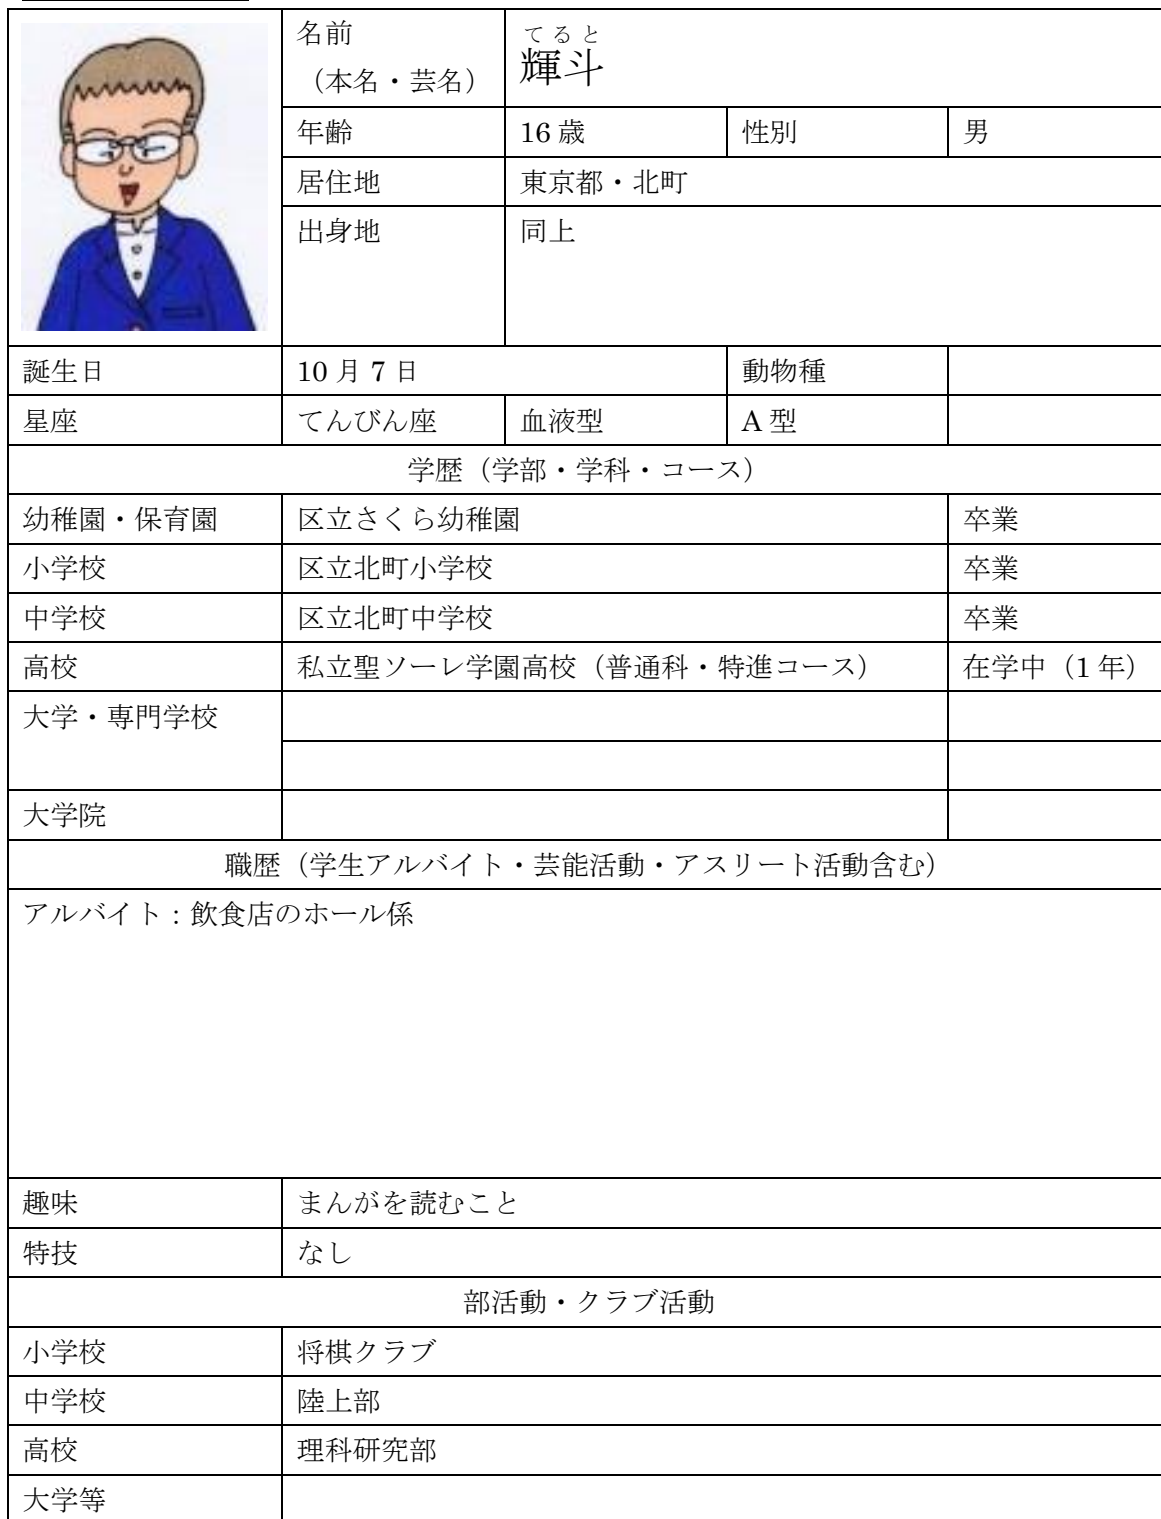 名前 てると
（本名・芸名） 輝斗
年齢 16歳 性別 男
居住地 東京都・北町
出身地 同上
誕生日 10月7日 動物種
星座 てんびん座 血液型 A型
学歴（学部・学科・コース）
幼稚園・保育園 区立さくら幼稚園 卒業
小学校 区立北町小学校 卒業
中学校 区立北町中学校 卒業
高校 私立聖ソーレ学園高校（普通科・特進コース） 在学中（1年）
大学・専門学校
大学院
職歴（学生アルバイト・芸能活動・アスリート活動含む）
アルバイト：飲食店のホール係
趣味 まんがを読むこと
特技 なし
部活動・クラブ活動
小学校 将棋クラブ
中学校 陸上部
高校 理科研究部
大学等